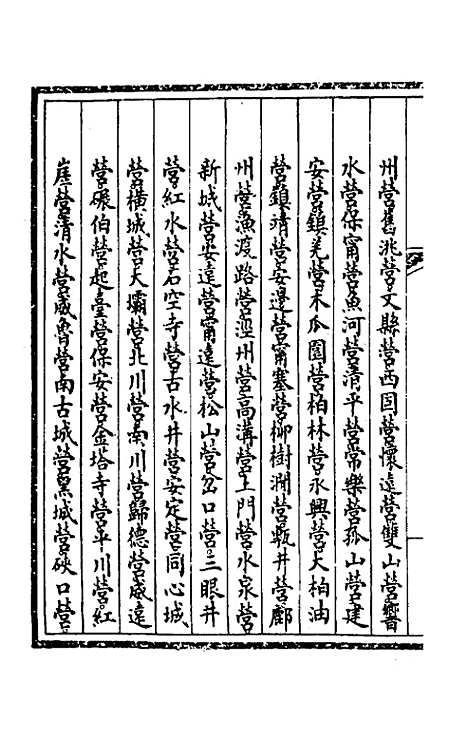 州營舊洮營文縣營西固營懷遠營雙山營響
水營保甯營魚河營清平營常樂營孤山營建
安營鎮羌營木瓜園營柏林營永興營大柏油
營鎮靖營安邊營甯塞營柳樹澗營甎井營鄜
州營漁渡路營涇州營高溝營土門營水泉營
新城營安遠營甯遠營松山營岔口營三眼井
營紅水營石空寺營古水井營安定營同心城
營橫城營大壩營北川營南川營歸德營威遠
營碾伯營起臺營保安營金塔寺營平川營紅
崖營清水營威魯營南古城營黑城營硤口營